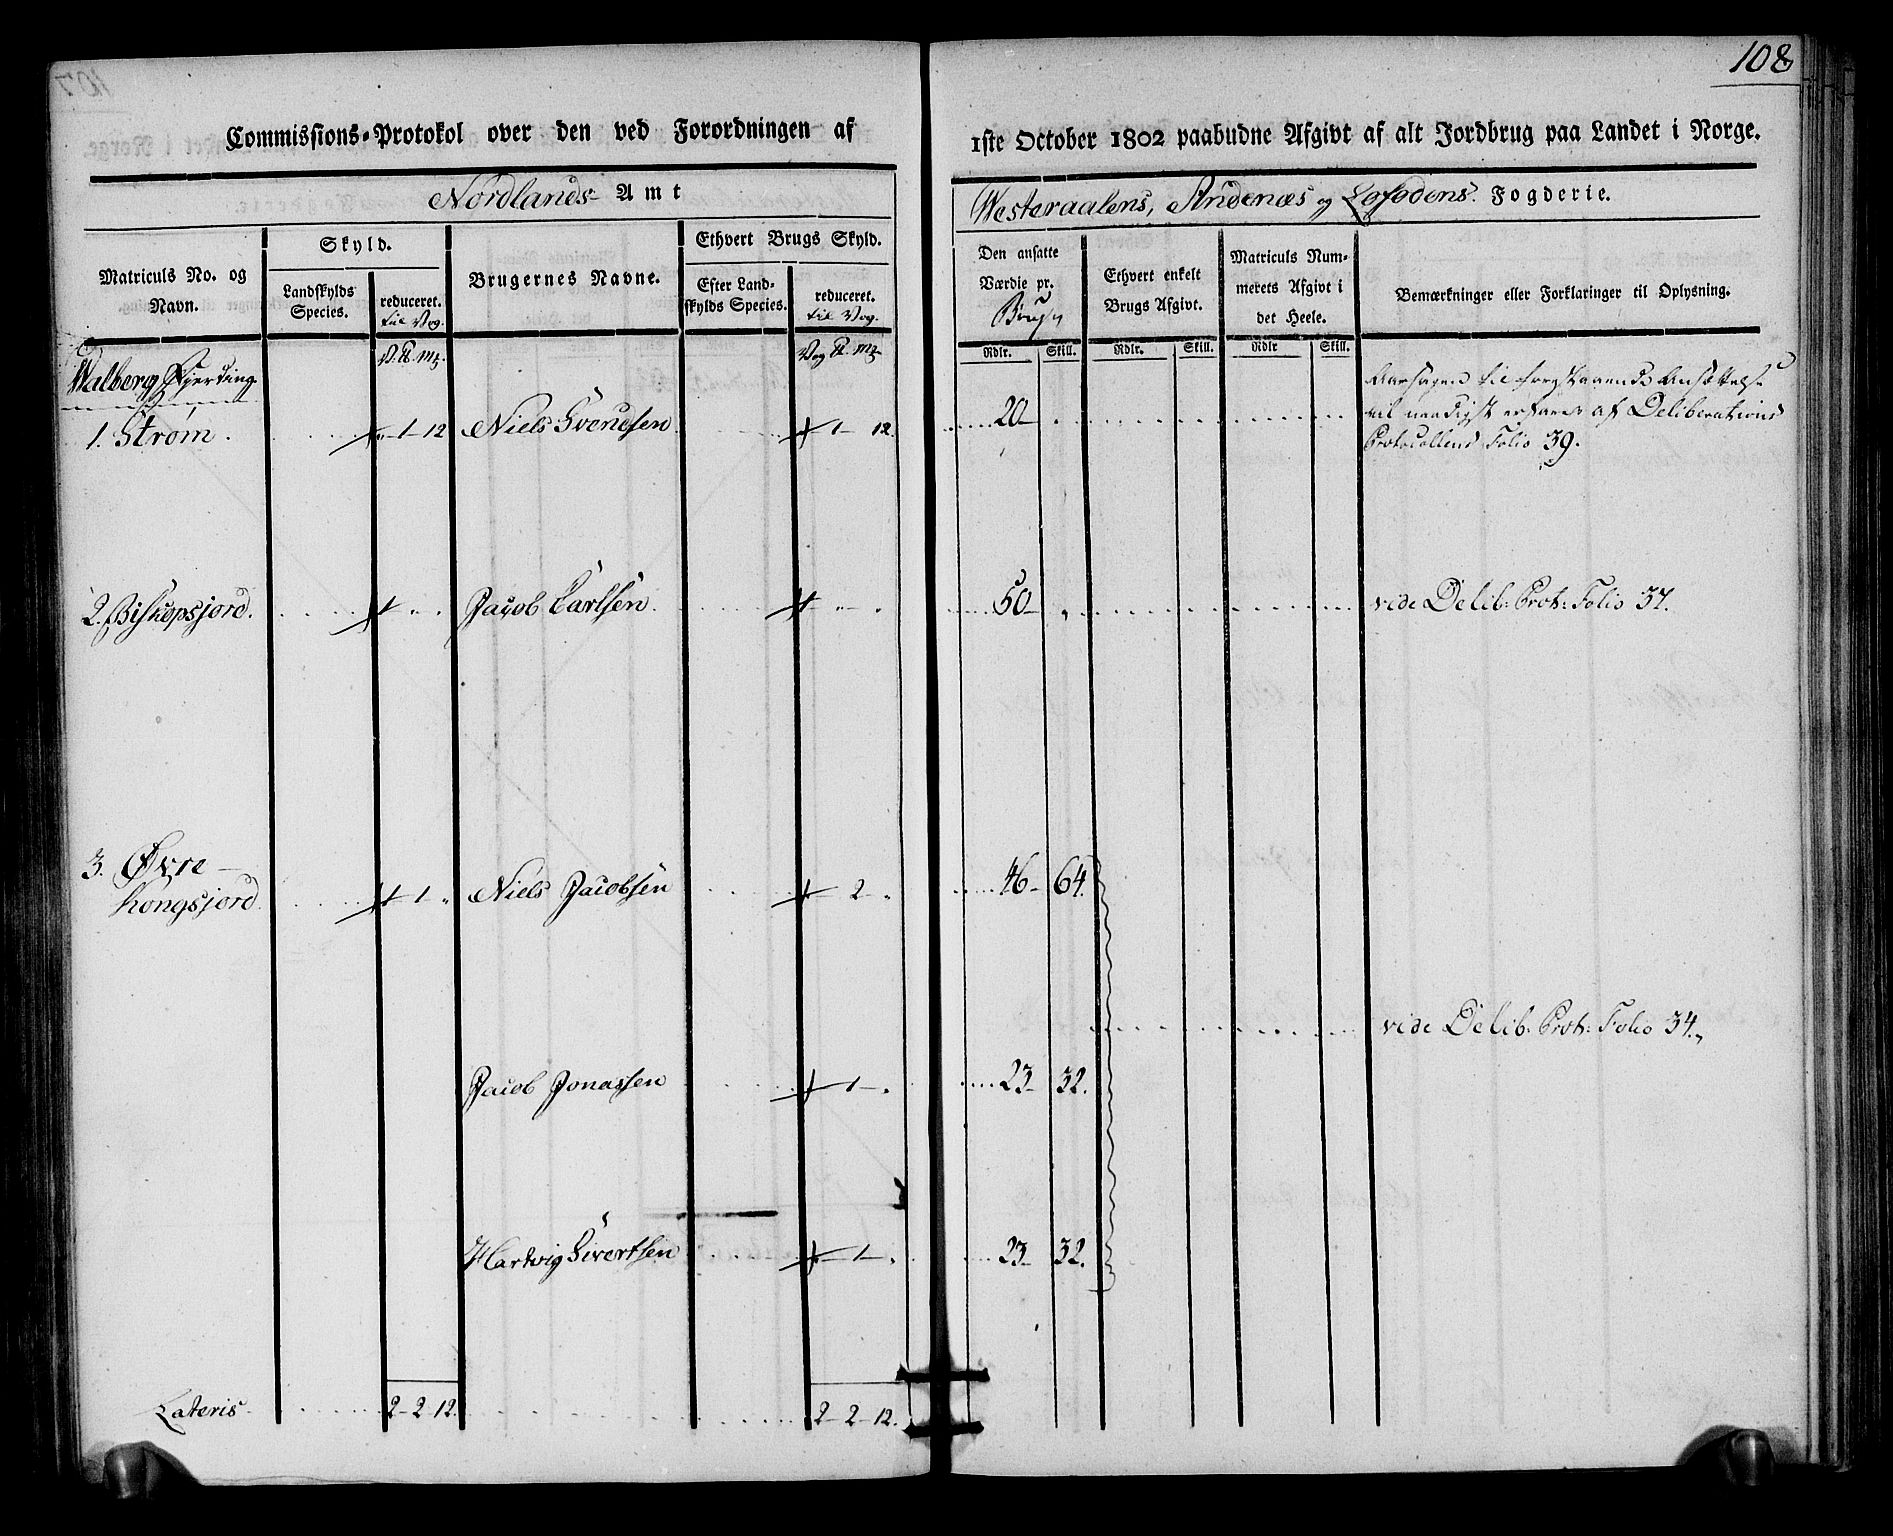 108
Commissions-Protokol over den ved Forordningen af 1ste October 1802 paabudne Afgivt af alt Jordbrug paa Landet i Norge.
Nordlands Amt Westeraalens, Andenæs og Lofodens Fogderie.
Matriculs No. og Navn.
Skyld.
Landskylds Species.
reduceret. til Vog.
Brugernes Navne.
Ethvert Brugs Skyld.
Efter Landskylds Species.
reduceret. til Vog.
Den ansatte Værdie pr. Brug
Ethvert enkelt Brugs Afgivt.
Matriculs Nummerets Afgivt i det Heele.
Bemærkninger eller Forklaringer til Oplysning.
Rdlr. Skill. Rdlr. Skill. Rdlr Skill.
Walberg Fjerding
1. Strøm. 1 - 12 Niels Svendsen 1 - 12. 20 -
Aarsagen til forestaaende Ansættelse
vil naadigst erfares af Deliberations
Protocollens Folio 39.
2. Bispopsjord. Jacob Carlsen. 50 - vide Delib: Prot: Folio 37.
3. Øvre -
Kongsjord 1 Niels Jacobsen 2 46 - 64.
vide Delib: Prot: Folio 34.
Jacob Jonassen 1 23 - 32.
Hartvig Sivertsen 1 23 - 32.
Lateris 2 - 2 - 12. 2 - 2 - 12.